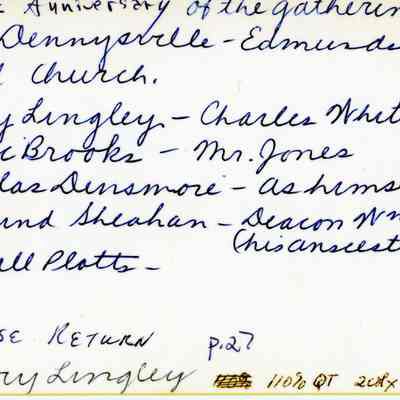 Anniversary of the gatherin
Dennysville - Edmunds
Church.
y Lingley - Charles Whit
Brooks - Mr. Jones
las Dinsmore - as hims
und Sheahan - Deacon Wm
(his ancest
ll Plotts -
SE RETURN p.27
ry Lingley 110% QT